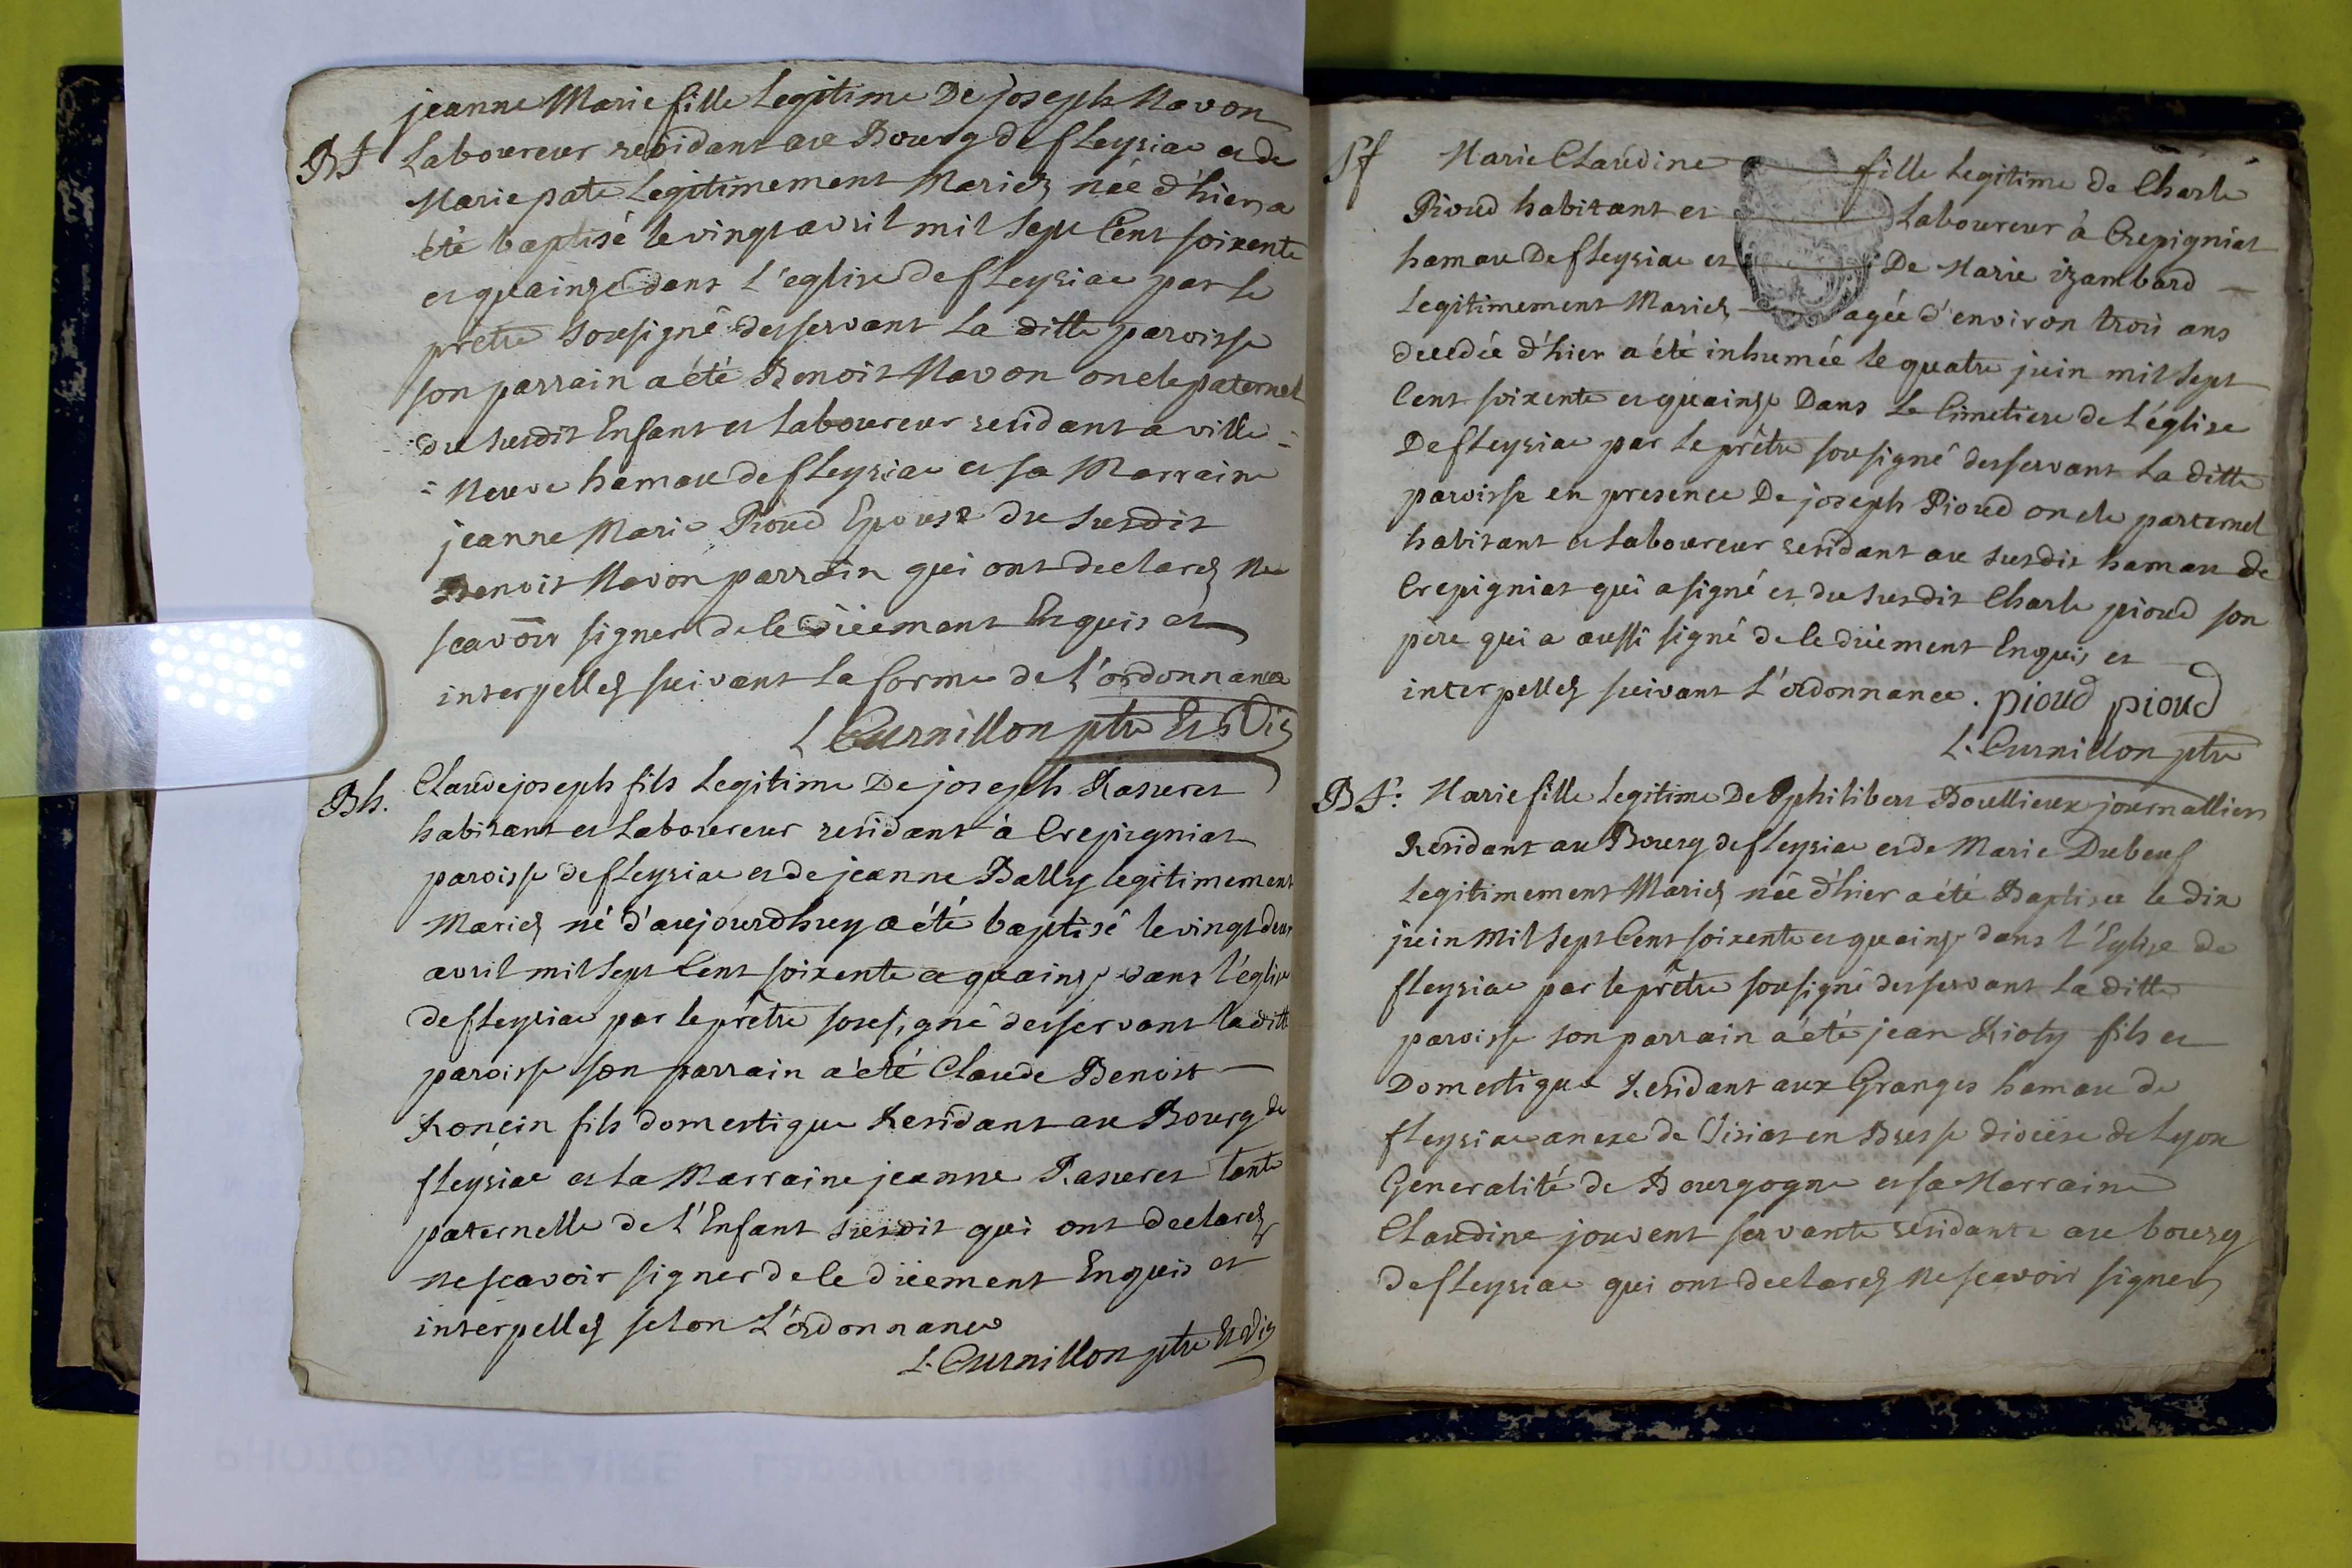 jeanne Marie fille Legitime De joseph Navon
Bf Laboureur residant au Bourg de fleysiac et de
Marie pate Legitimement Mariez née d'hier a
été baptisé le vingt avril mil sept Cent soixente
et quainze dans l'eglise de fleysiac par le
prêtre sousigné desservant La ditte paroisse
son parrain a été Benoit Navon oncle paternel
du susdit Enfant et Laboureur residant a ville =
= Neuve hamau de fleysiac et sa Marraine
jeanne Marie Pioud Epouse du susdit
Benoit Navon parrain qui ont declarez Ne
scavoir signer de le Duement Enquis et
interpellez suivant La forme de l'ordonnance
L Curnillon ptre
Bh. Claude joseph fils Legitime De joseph Rasuret
habitant et Laboureur residant à Crepigniat
paroisse de fleysiac et de jeanne Bally legitimement
Mariez né d'aujourdhuy a été baptisé le vingt deux
avril mil sept Cent soixente et quainze dans l'églize
de fleysiac par le prêtre sousigné desservant la ditte
paroisse son parrain a été Claude Benoit
Roncin fils domestique Residant au Bourg de
fleysiac et La Marraine jeanne Rasuret tante
paternelle de l'Enfant susdit qui ont declarez
ne scavoir signer de le duement Enquis et
interpellez selon L'ordonnance
L. Curnillon ptre
Sf Marie Claudine fille Legitime de Charle
Pioud habitant et Laboureur à Crepigniat
hamau De fleysiac et De Marie izambard
Legitimement Mariez agée d'environ trois ans
decedée d'hier a été inhumée le quatre juin mil sept
Cent soixente et quainze Dans Le Cimetiere de L'églize
De fleysiac par le prêtre sousigné desservant La ditte
paroisse en presence De joseph Pioud oncle parternel
habitant et Laboureur residant au susdit hamau de
Crepigniat qui a signé et du susdit Charle pioud son
pere qui a aussi signé de le duement Enquis et
interpellez suivant L'ordonnance. pioud pioud
L. Curnillon ptre
Bf: Marie fille Legitime De philibert Boullieux journallier
Residant au Bourg de fleysiac et de Marie Dubeuf
Legitimement Mariez née d'hier a été Baptisée le dix
juin Mil Sept Cent soixente et quainze dans l'Eglize de
fleysiac par le prêtre sousigné desservant La ditte
paroisse son parrain a été jean Rioty fils et
Domestique Residant aux Granges hamau de
fleysiac anexe de Virias en Bresse dioceze de Lyon
Generalité de Bourgogne et sa Marraine
Claudine jouvent servante residante au bourg
de fleysiac qui ont declarez Ne scavoir signer